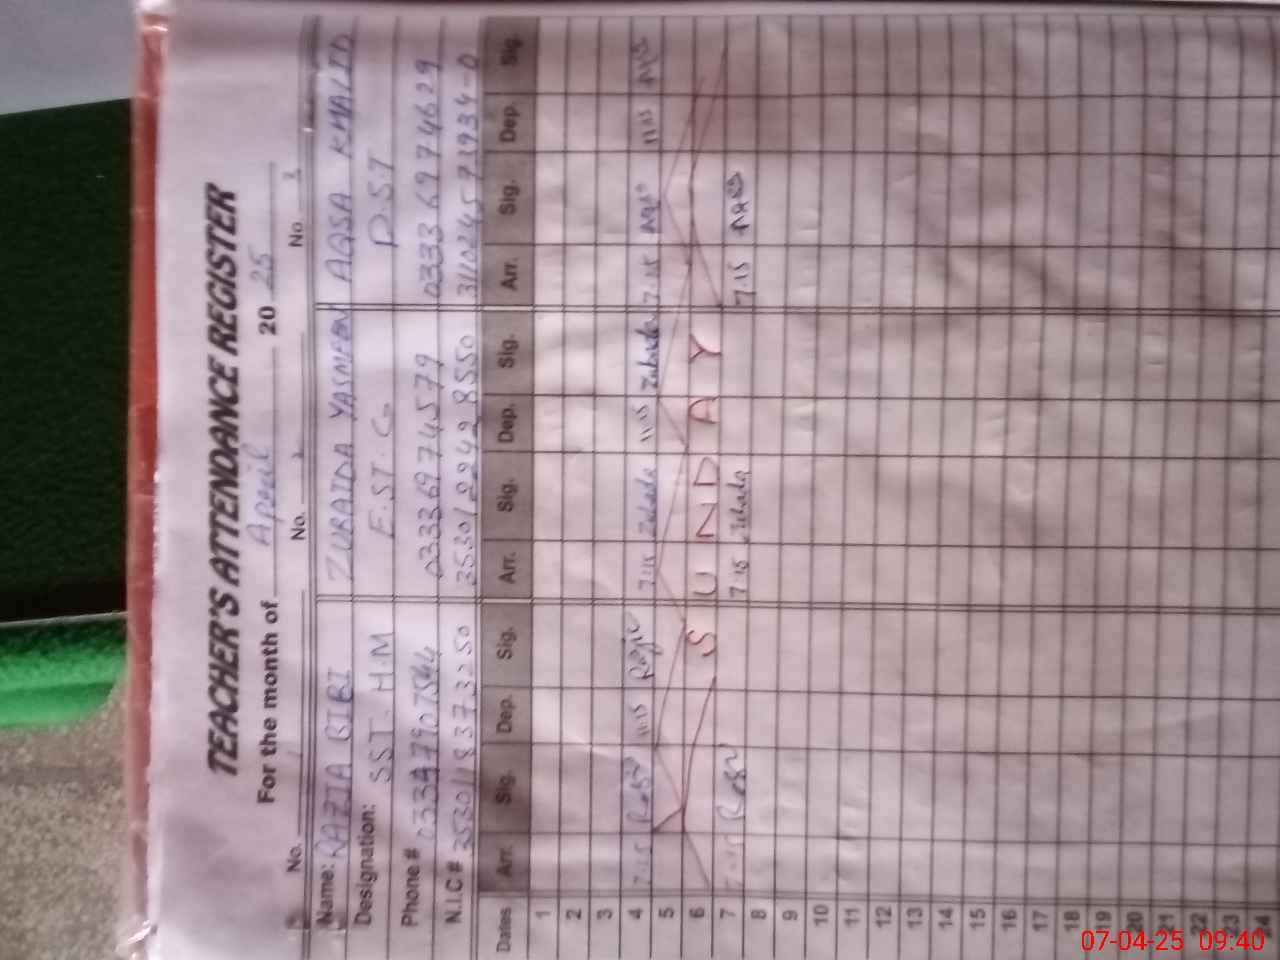 TEACHER'S ATTENDANCE REGISTER
For the month of April 2025
No. 1 No. 2 No. 3
Name: RAZIA BIBI ZUBAIDA YASMEEN AQSA KHALID
Designation: SST. H.M E.ST.C. P.S.T
Phone # 03336974579 03336974629
N.I.C #
Dates Arr. Sig. Dep. Sig. Arr. Sig. Dep. Sig. Arr. Sig. Dep. Sig.
1
2
3
4 7:15 11:15 7:15 11:15 7:15 11:15
5
6 SUNDAY
7 7:15 7:15 7:15
8
9
10
11
12
13
14
15
16
17
18
19
20
21
22
23
24
07-04-25 09:40